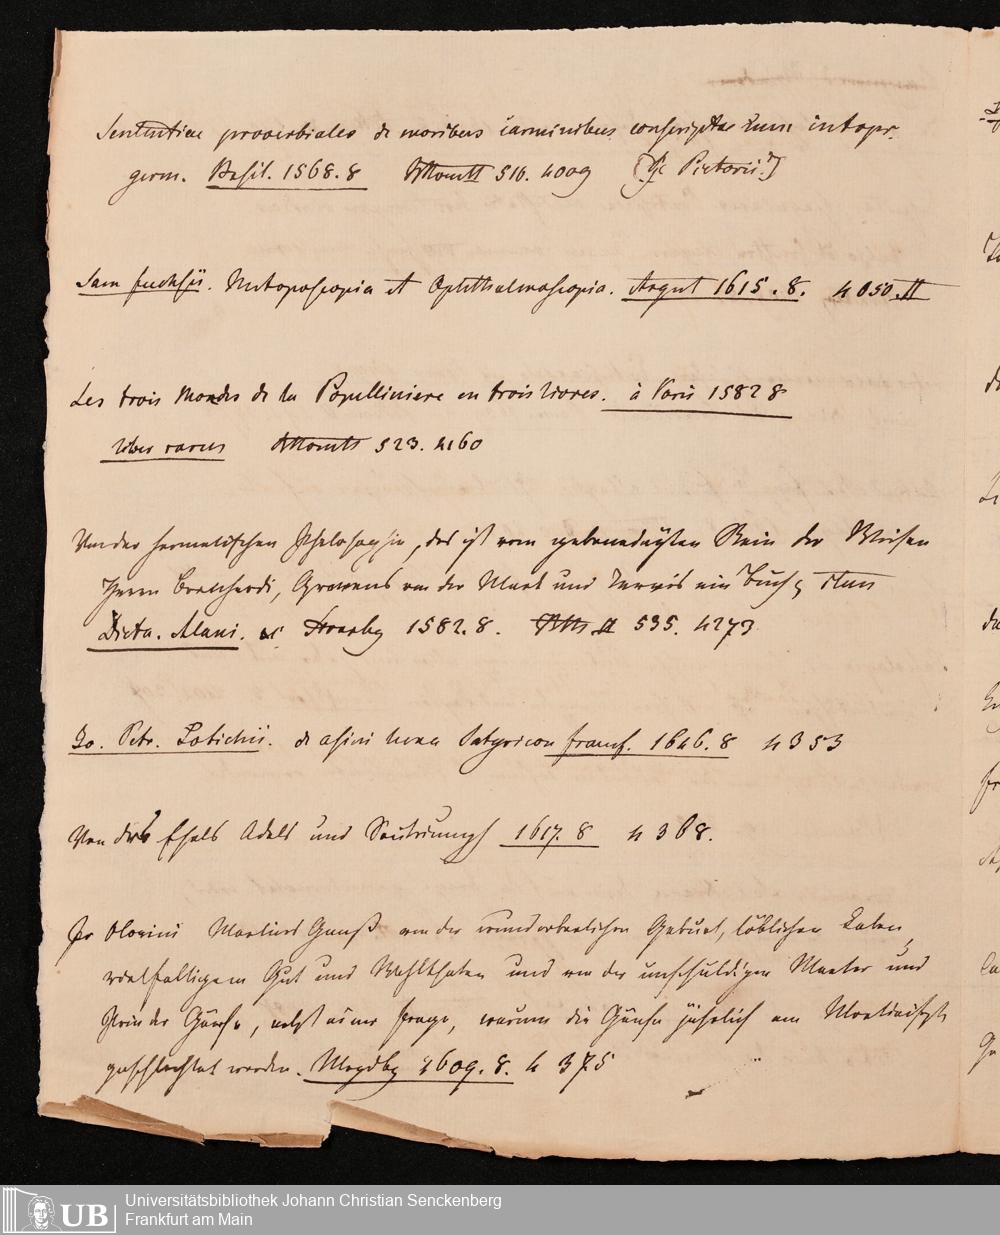 Sententiae proverbiales de moribus carminibus conscriptae cum interpr.
germ. Basil. 1568. 8 516. 4009
Sam fuchsii. Metoposcopia et Ophthalmoscopia. Argent 1615. 8. 4050. II
Les trois Mondes de la Popelliniere en trois livres. à Paris 1582 8
liber rarus 523. 4160
Von der hermetischen Philosophia, das ist vom gebenedeyten Stein der Weisen
Herrn Bernhardi, Graven von der Mark und Tervis ein Buch,
Dicta. Alani. Strasbg 1582. 8. 535. 4273
Jo. Petr. Lotichii. de asini Satyricon francf. 1646. 8 4353
Von des Esels Adel und Sautriumph 1617. 8 4368.
Jo Olorini Martins Ganß von der wunderbarlichen Geburt, löblichen Leben,
vielfaltigem Gut und Wohlthaten und von der unschuldigen Marter und
Pein der Gänse, nebst einer frage, warum die Gänse jährlich am Martinifest
geschlachtet werden. Magdbg 1609. 8. 4375
UB
Universitätsbibliothek Johann Christian Senckenberg
Frankfurt am Main